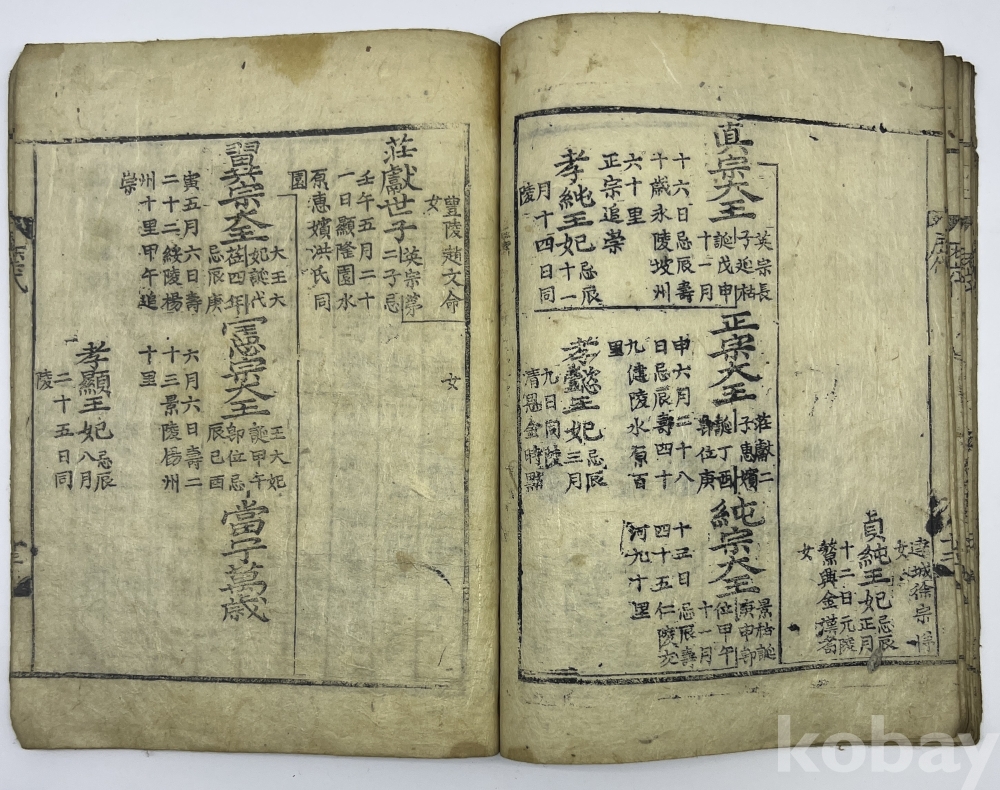 達城徐宗悌
女
貞純王妃忌辰
正月
十二日元陵
鰲興金漢耉
女
真宗大王英宗長
子延祜
誕戊申
十一月
十六日忌辰壽
十歲永陵坡州
六十里
正宗追崇
孝純王妃忌辰
十一
月十四日同
陵
正宗大王莊獻二
子惠嬪
誕丁酉
卽位庚
申六月二十八
日忌辰壽四十
九健陵水原百
里
孝懿王妃忌辰
三月
九日同陵
清恩金時默
純宗大王景祜誕
庚申卽
位甲午
十一月
十五日忌辰壽
四十五仁陵交
河九十里
豐陵趙文命
女
女
莊獻世子英宗榮
二子忌
壬午五月二十
一日顯隆園水
原惠嬪洪氏同
園
翼宗大王大王大
妃誕代
位四年
忌辰庚
寅五月六日壽
二十二綏陵楊
州十里甲午追
崇
憲宗大王王大妃
誕甲午
卽位忌
辰己酉
六月六日壽二
十三景陵楊州
十里
孝顯王妃忌辰
八月
二十五日同
陵
當宁萬歲
kobay